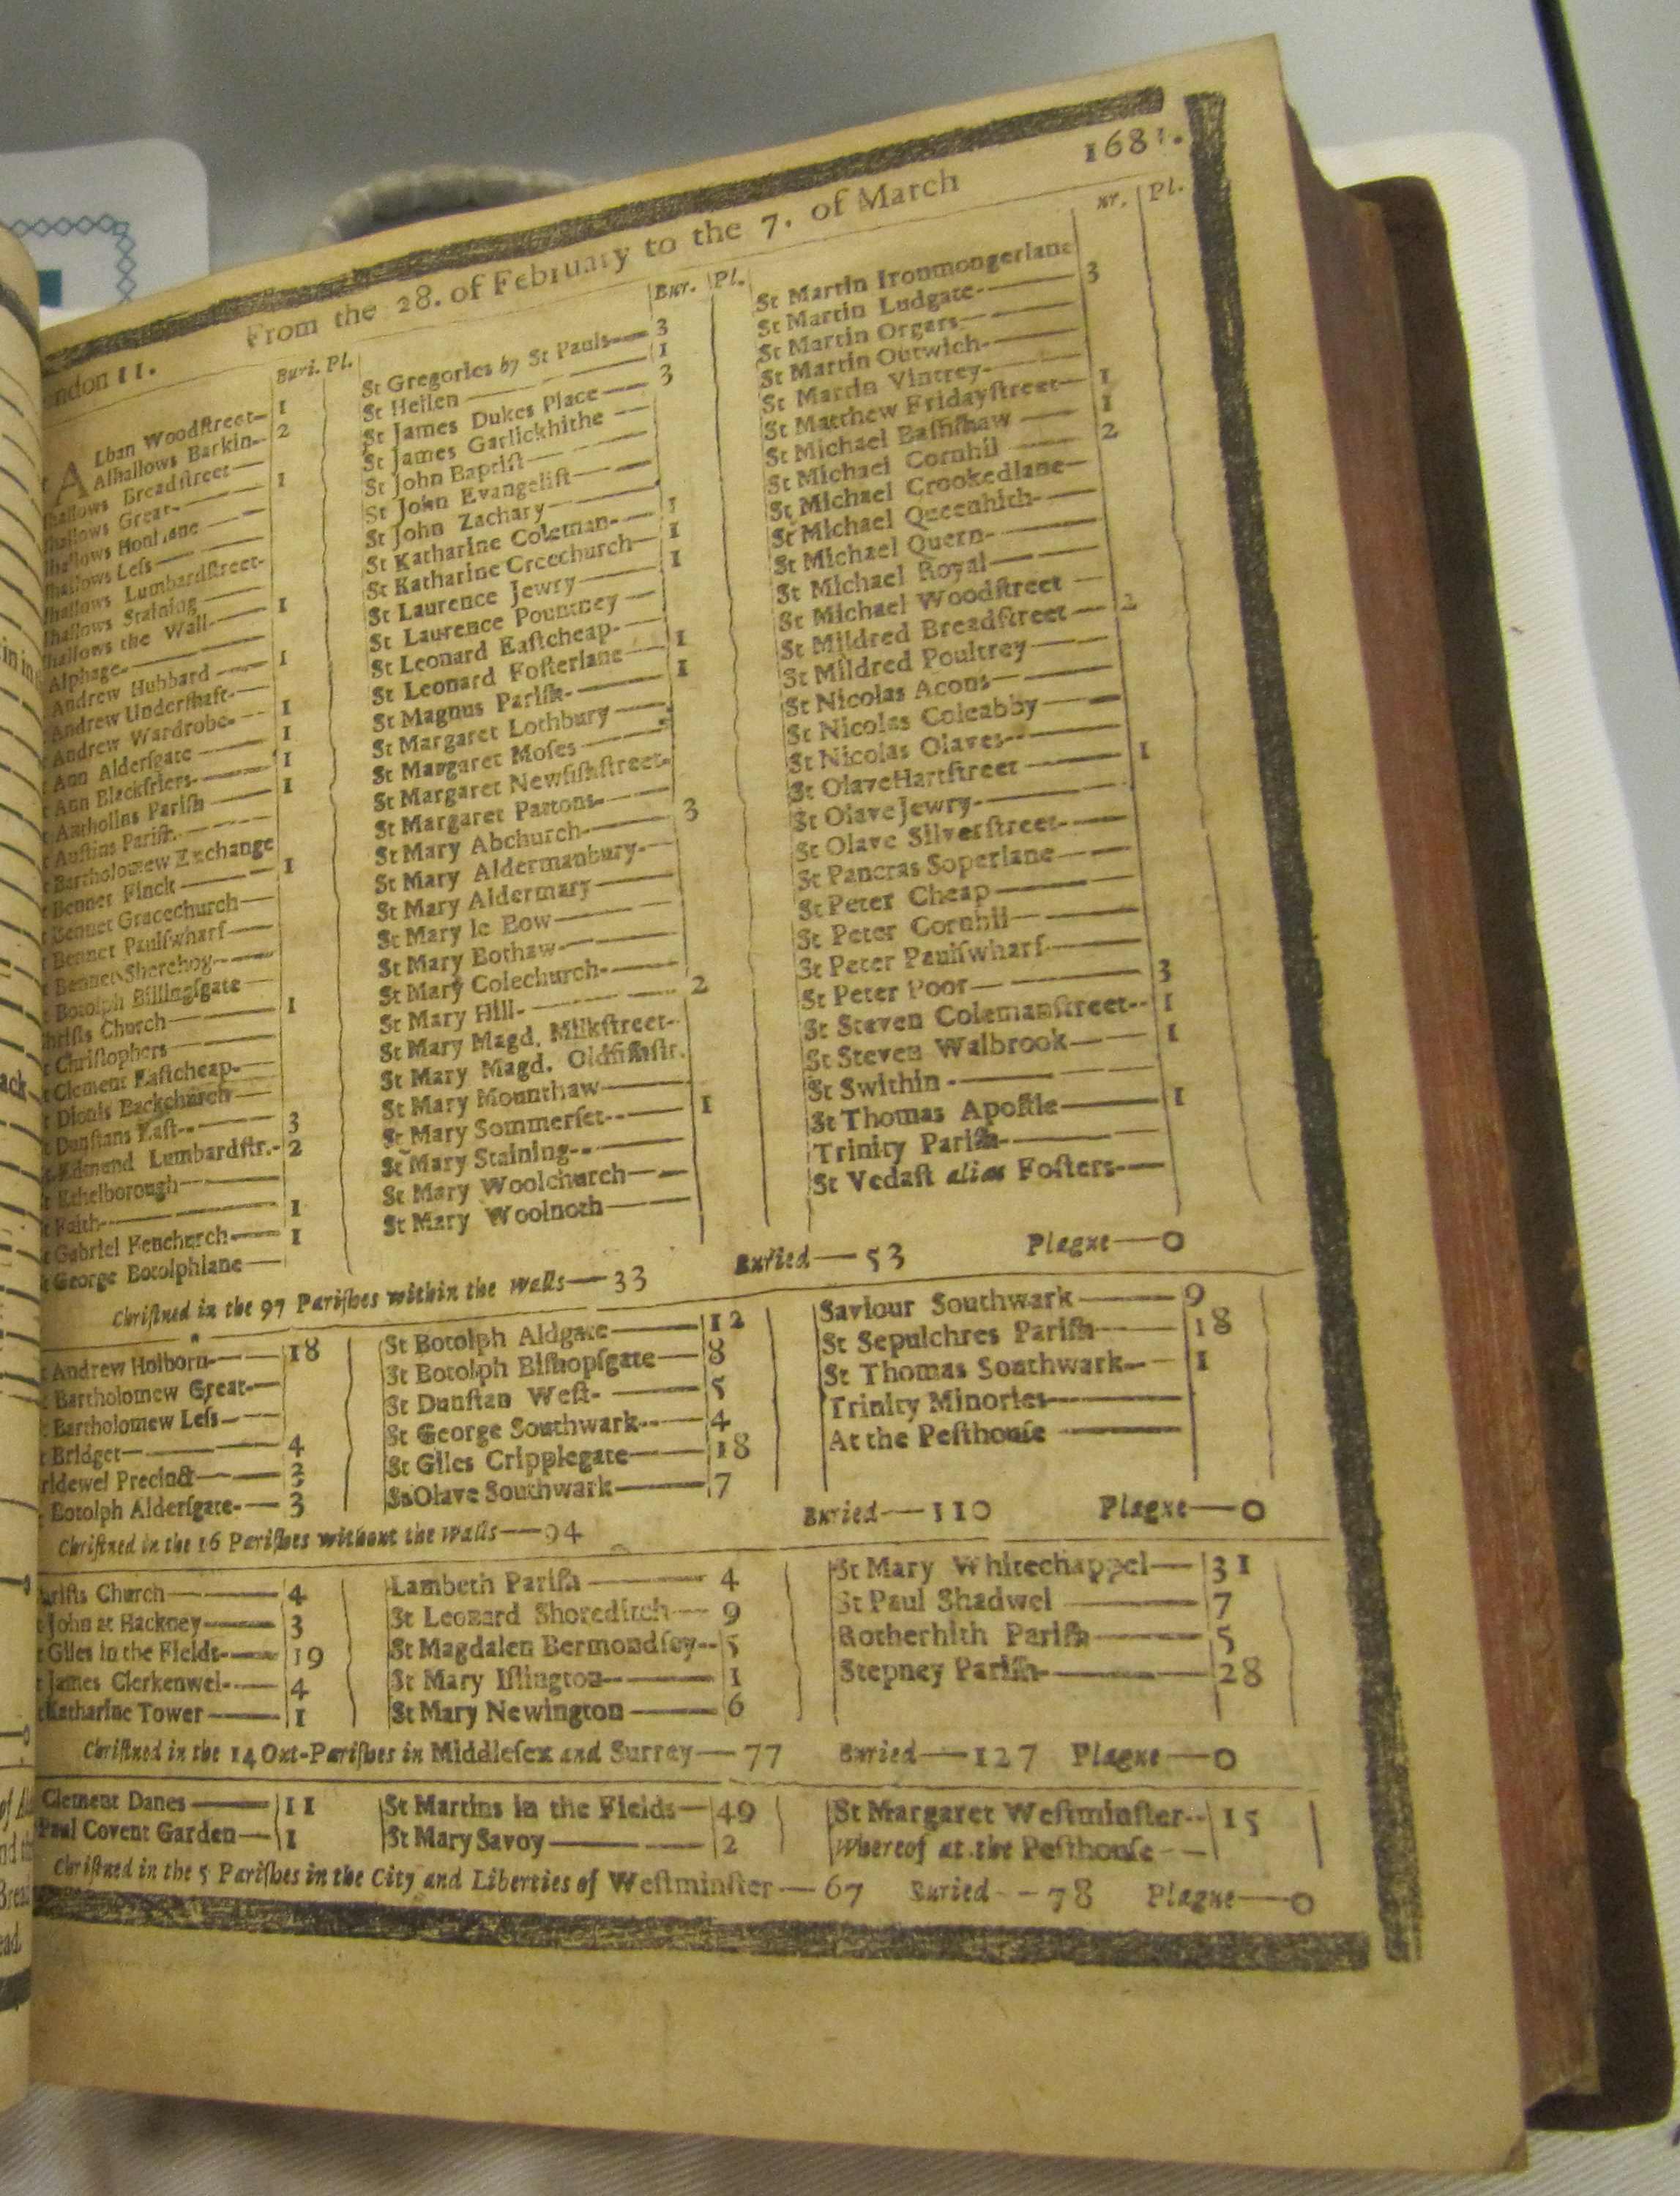 168
From the 28. of February to the 7. of March
ondon 11.
Buri. Pl.
Lban Woodſtreet 1
Alhallows Barkin 2
hallows Breadſtreet
hallows Great 1
hallows Honilane
hallows Leſs
hallows Lumbardſtreet
hallows Staining
hallows the Wall 1
Alphage
Andrew Hubbard 1
Andrew Underſhaft
Andrew Wardrobe 1
Ann Alderſgate 1
Ann Blackfriers 1
t Antholins Pariſh 1
t Auſtins Pariſh
t Bartholomew Exchange
t Bennet Finck 1
t Bennet Gracechurch
t Bennet Paulſwharf
t Bennet Sherehog
t Botolph Billingſgate
hriſts Church 1
t Chriſtophers
t Clement Eaſtcheap
t Dionis Backchurch
t Dunſtans Eaſt 3
t Edmund Lumbardſtr. 2
t Ethelborough
t Faith 1
t Gabriel Fenchurch 1
t George Botolphlane
Bur. Pl.
St Gregories by St Pauls 3
St Hellen 1
St James Dukes Place 3
St James Garlickhithe
St John Baptiſt
St John Evangeliſt
St John Zachary
St Katharine Coleman 1
St Katharine Creechurch 1
St Laurence Jewry 1
St Laurence Pountney
St Leonard Eaſtcheap 1
St Leonard Foſterlane 1
St Magnus Pariſh
St Margaret Lothbury
St Margaret Moſes
St Margaret Newfiſhſtreet
St Margaret Pattons
St Mary Abchurch 3
St Mary Aldermanbury
St Mary Aldermary
St Mary le Bow
St Mary Bothaw
St Mary Colechurch
St Mary Hill 2
St Mary Magd. Milkſtreet
St Mary Magd. Oldfiſhſtr.
St Mary Mounthaw
St Mary Sommerſet 1
St Mary Staining
St Mary Woolchurch
St Mary Woolnoth
ur. Pl.
St Martin Ironmongerlane
St Martin Ludgate 3
St Martin Orgars
St Martin Outwich
St Martin Vintrey
St Matthew Fridayſtreet 1
St Michael Baſhſhaw 1
St Michael Cornhil 2
St Michael Crookedlane
St Michael Queenhith
St Michael Quern
St Michael Royal
St Michael Woodſtreet
St Mildred Breadſtreet 2
St Mildred Poultrey
St Nicolas Acons
St Nicolas Coleabby
St Nicolas Olaves
St Olave Hartſtreet 1
St Olave Jewry
St Olave Silverſtreet
St Pancras Soperlane
St Peter Cheap
St Peter Cornhil
St Peter Paulſwharf
St Peter Poor 3
St Steven Colemanſtreet 1
St Steven Walbrook 1
St Swithin
St Thomas Apoſtle 1
Trinity Pariſh
St Vedaſt alias Foſters
Chriſtned in the 97 Pariſhes within the Walls—33 Buried—53 Plague—0
t Andrew Holborn 18
Bartholomew Great
Bartholomew Leſs
t Bridget 4
ridewel Precinct
Botolph Alderſgate 3
St Botolph Aldgate 12
St Botolph Biſhopſgate 8
St Dunſtan Weſt 5
St George Southwark 4
St Giles Cripplegate 18
St Olave Southwark 7
Saviour Southwark 9
St Sepulchres Pariſh 18
St Thomas Southwark 1
Trinity Minories
At the Peſthouſe
Chriſtned in the 16 Pariſhes without the Walls—94 Buried—110 Plague—0
hriſts Church 4
John at Hackney 3
t Giles in the Fields 19
t James Clerkenwel 4
t Katharine Tower 1
Lambeth Pariſh 4
St Leonard Shoreditch 9
St Magdalen Bermondſey 5
St Mary Iſlington 1
St Mary Newington 6
St Mary Whitechappel 31
St Paul Shadwel 7
Rotherhith Pariſh 5
Stepney Pariſh 28
Chriſtned in the 14 Out-Pariſhes in Middleſex and Surrey—77 Buried—127 Plague—0
Clement Danes 11
Paul Covent Garden 1
St Martins in the Fields 49
St Mary Savoy 2
St Margaret Weſtminſter 15
Whereof at the Peſthouſe
Chriſtned in the 5 Pariſhes in the City and Liberties of Weſtminſter—67 Buried—78 Plague—0